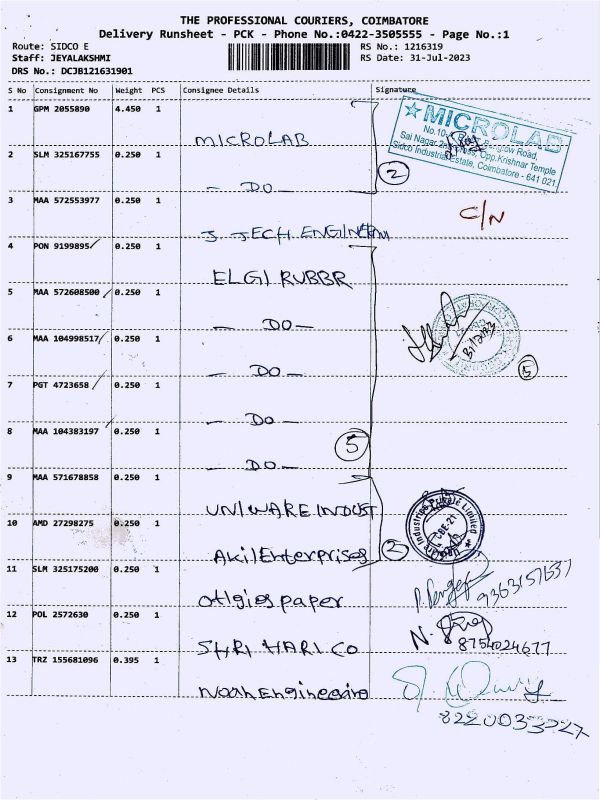 THE PROFESSIONAL COURIERS, COIMBATORE
Delivery Runsheet - PCK - Phone No.:0422-3505555 - Page No.:1
Route: SIDCO E RS No.: 1216319
Staff: JEYALAKSHMI RS Date: 31-Jul-2023
DRS No.: DCJB121631901
S No Consignment No Weight PCS Consignee Details Signature
1 GPM 2055890 4.450 1 MICROLAB
MICROLAB
No.10-
Sai Nagar, Opp.Krishnar Temple
Sidco Industrial Estate, Coimbatore - 641 021
2 SLM 325167755 0.250 1 - DO - 2
3 MAA 572553977 0.250 1 J. JECH ENGINEERIN C/N
4 PON 9199895 0.250 1 ELGI RUBBR
5 MAA 572608500 0.250 1 - DO -
6 MAA 104998517 0.250 1 - DO - 5
7 PGT 4723658 0.250 1 - DO -
8 MAA 104383197 0.250 1 - DO - 5
9 MAA 571678858 0.250 1 UNIWARE INDUST
10 AMD 27298275 0.250 1 Akil Enterprises 2
11 SLM 325175200 0.250 1 paper 9363157657
12 POL 2572630 0.250 1 SHRI HARI CO N. 8754024677
13 TRZ 155681096 0.395 1 Noah Engineering
8220033327